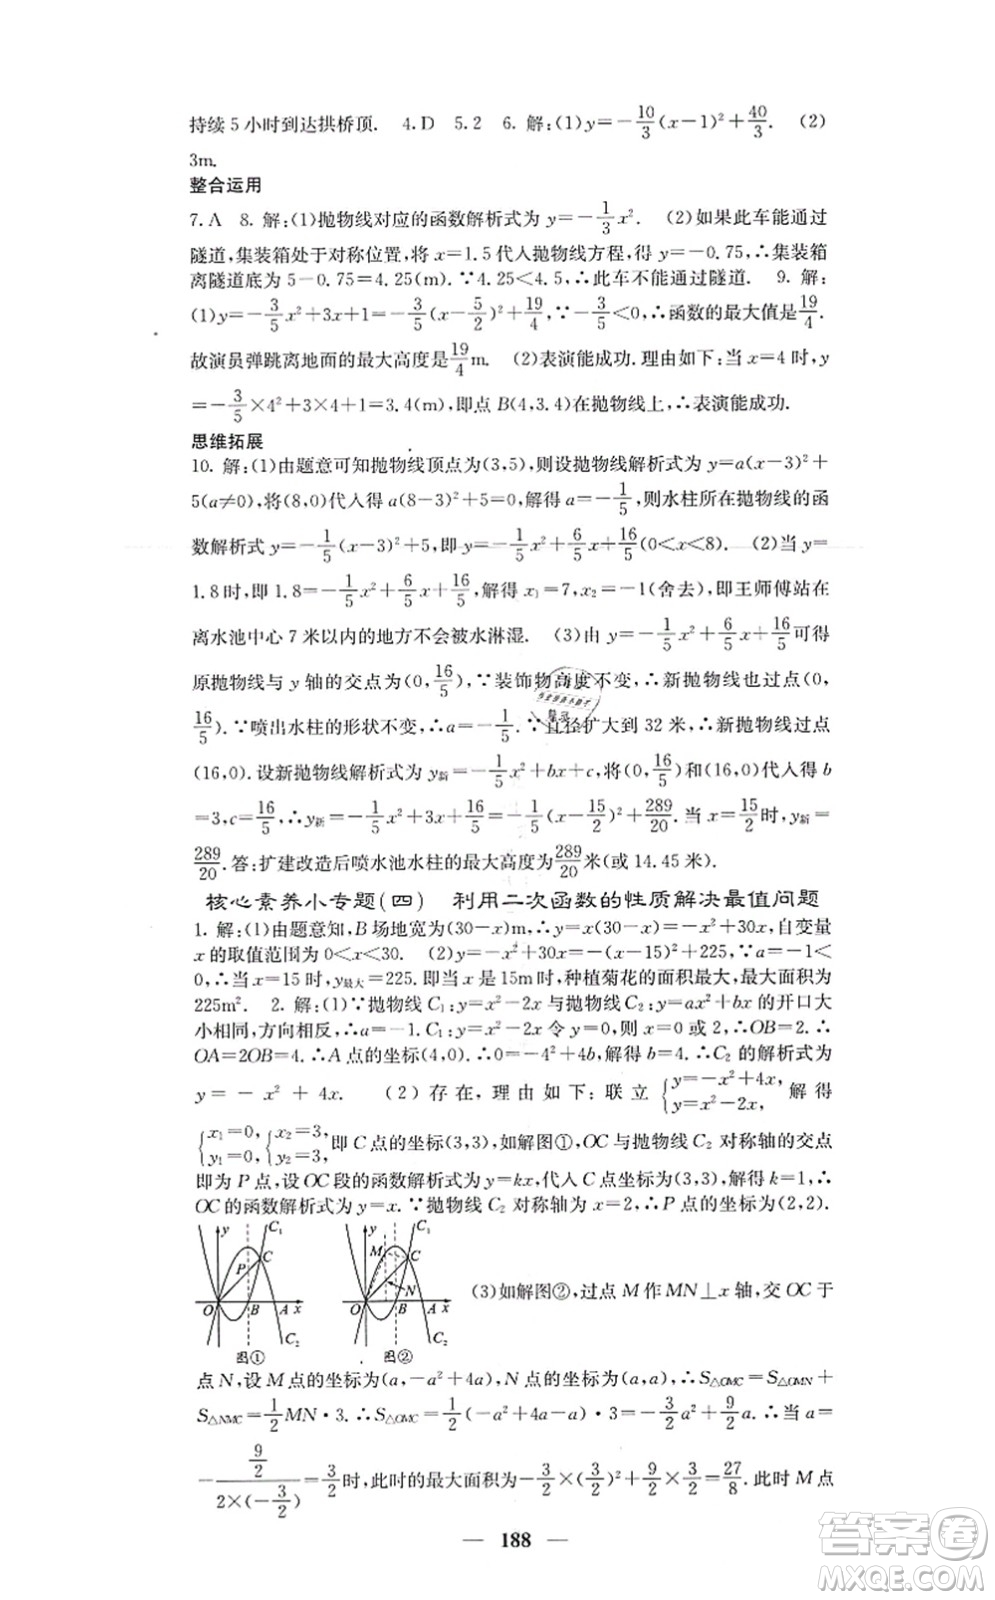 持续5小时到达拱桥顶. 4.D 5.2 6.解:(1)y=-10/3(x-1)²+40/3. (2)
3m.
整合运用
7.A 8.解:(1)抛物线对应的函数解析式为y=-1/3x². (2)如果此车能通过
隧道,集装箱处于对称位置,将x=1.5代人抛物线方程,得y=-0.75,∴集装箱
离隧道底为5-0.75=4.25(m).∵4.25<4.5,∴此车不能通过隧道. 9.解:
(1)y=-3/5x²+3x+1=-3/5(x-5/2)²+19/4,∵-3/5<0,∴函数的最大值是19/4.
故演员弹跳离地面的最大高度是19/4m. (2)表演能成功.理由如下:当x=4时,y
=-3/5×4²+3×4+1=3.4(m),即点B(4,3.4)在抛物线上,∴表演能成功.
思维拓展
10.解:(1)由题意可知抛物线顶点为(3,5),则设抛物线解析式为y=a(x-3)²+
5(a≠0),将(8,0)代人得a(8-3)²+5=0,解得a=-1/5,则水柱所在抛物线的函
数解析式y=-1/5(x-3)²+5,即y=-1/5x²+6/5x+16/5(0<x<8). (2)当y=
1.8时,即1.8=-1/5x²+6/5x+16/5,解得x₁=7,x₂=-1(舍去),即王师傅站在
离水池中心7米以内的地方不会被水淋湿. (3)由y=-1/5x²+6/5x+16/5可得
原抛物线与y轴的交点为(0,16/5),∵装饰物高度不变,∴新抛物线也过点(0,
16/5).∵喷出水柱的形状不变,∴a=-1/5.∵直径扩大到32米,∴新抛物线过点
(16,0).设新抛物线解析式为y新=-1/5x²+bx+c,将(0,16/5)和(16,0)代人得b
=3,c=16/5,∴y新=-1/5x²+3x+16/5=-1/5(x-15/2)²+289/20.当x=15/2时,y新=
289/20.答:扩建改造后喷水池水柱的最大高度为289/20米(或14.45米).
核心素养小专题(四) 利用二次函数的性质解决最值问题
1.解:(1)由题意知,B场地宽为(30-x)m,∴y=x(30-x)=-x²+30x,自变量
x的取值范围为0<x<30. (2)y=-x²+30x=-(x-15)²+225,∵a=-1<
0,∴当x=15时,y最大=225.即当x是15m时,种植菊花的面积最大,最大面积为
225m². 2.解:(1)∵抛物线C₁:y=x²-2x与抛物线C₂:y=ax²+bx的开口大
小相同,方向相反,∴a=-1.C₁:y=x²-2x令y=0,则x=0或2,∴OB=2.∴
OA=2OB=4.∴A点的坐标(4,0).∴0=-4²+4b,解得b=4.∴C₂的解析式为
y=-x²+4x. (2)存在,理由如下:联立{y=-x²+4x, y=x²-2x,解得
{x₁=0, y₁=0,{x₂=3, y₂=3,即C点的坐标(3,3),如解图①,OC与抛物线C₂对称轴的交点
即为P点,设OC段的函数解析式为y=kx,代人C点坐标为(3,3),解得k=1,∴
OC的函数解析式为y=x.∵抛物线C₂对称轴为x=2,∴P点的坐标为(2,2).
y C₁ P C O B A x C₂ 图①
y C₁ M C N O B A x C₂ 图②
(3)如解图②,过点M作MN⊥x轴,交OC于
点N,设M点的坐标为(a,-a²+4a),则N点的坐标为(a,a),∴S△OMC=S△OMN+
S△NMC=1/2MN·3.∴S△OMC=1/2(-a²+4a-a)·3=-3/2a²+9/2a.∴当a=
-(9/2)/(2×(-3/2))=3/2时,此时的最大面积为-3/2×(3/2)²+9/2×3/2=27/8.此时M点
— 188 —
答案卷
MXQE.COM